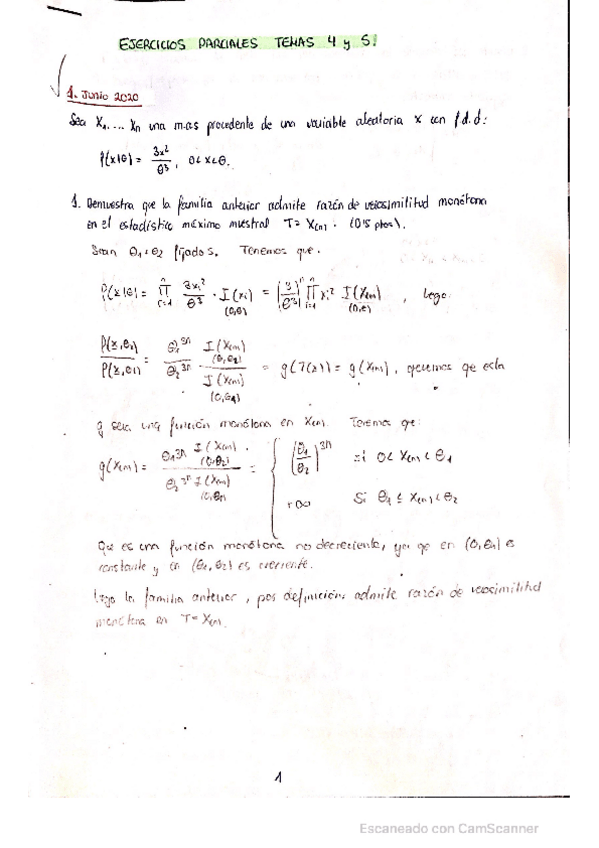 EJERCICIOS PARCIALES TEMAS 4 y 5.
1. Junio 2020
Sea X1.... Xn una m.a.s procedente de una variable aleatoria x con f.d.d:
f(x|θ) = 3x²/θ³, 0<x<θ.
1. Demuestra que la familia anterior admite razón de verosimilitud monótona
en el estadístico máximo muestral T= X(n). (0'5 ptos).
Sean θ1<θ2 fijados. Tenemos que.
f(x|θ) = ∏ i=1 n 3xi²/θ³ · I(xi) (0,θ) = (3/θ³)^n ∏ i=1 n xi² I(X(n)) (0,θ), luego:
f(x,θ2)/f(x,θ1) = θ1^3n/θ2^3n I(X(n)) (0,θ2) / I(X(n)) (0,θ1) = g(T(x)) = g(X(n)), queremos que esta
g sea una función monótona en X(n). Tenemos que:
g(X(n)) = θ1^3n I(X(n)) (0,θ2) / θ2^3n I(X(n)) (0,θ1) = { (θ1/θ2)^3n si 0<X(n)<θ1
+∞ Si θ1 ≤ X(n) < θ2
Que es una función monótona no decreciente, ya qe en (0,θ1) es
constante y en (θ1,θ2) es creciente.
Luego la familia anterior, por definición, admite razón de verosimilitud
monótona en T=X(n).
1
Escaneado con CamScanner